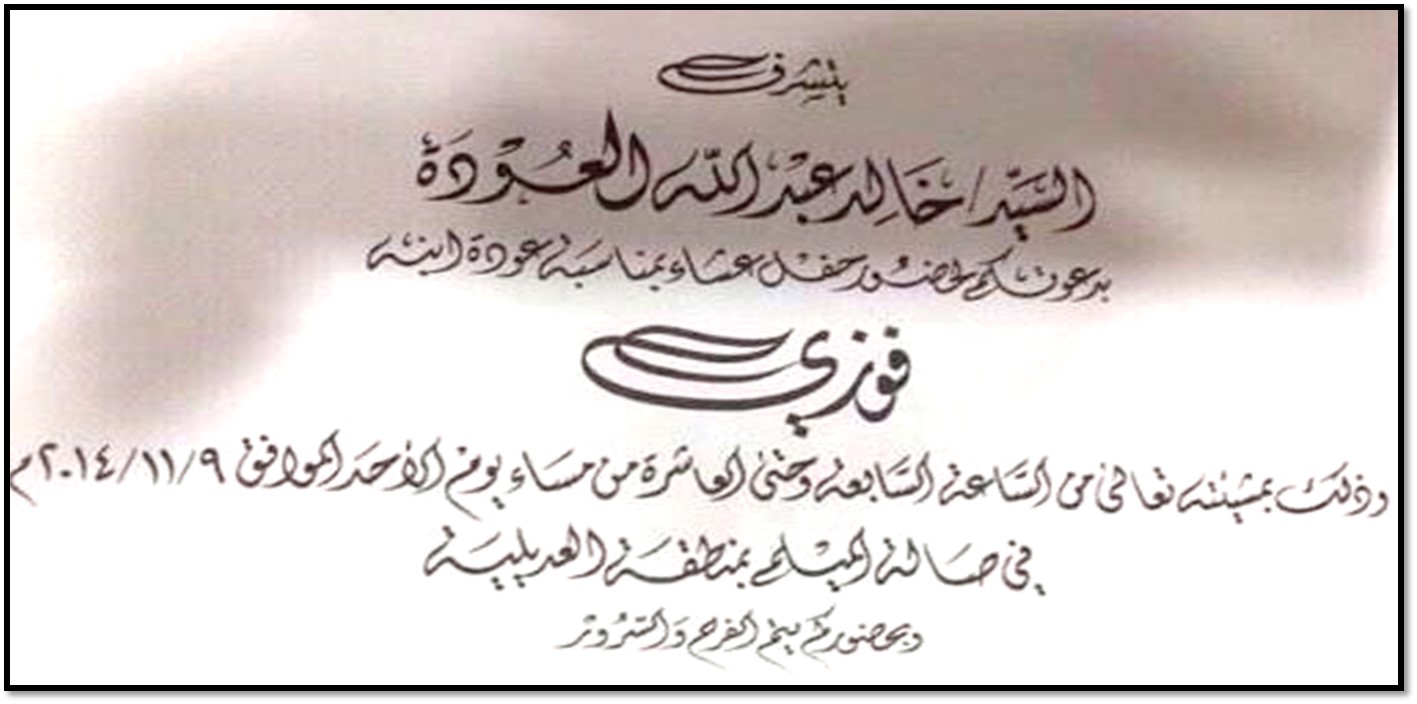 يتشرف
السَيِّد/خَالِد عَبْد اللّه العُوْدَة
بدعوتكم لحضور حفل عشاء بمناسبة عودة ابنه
فوزي
وذلك بمشيئته تعالى من السَّاعة السَّابعة وحَتى العاشرة من مسَاء يوم الأحَد الموافق ٢٠١٤/١١/٩م
في صَالة المَيْلم بمنطقَة العديليَة
وبحضوركم يتم الفرح وَالسُّرُوْر